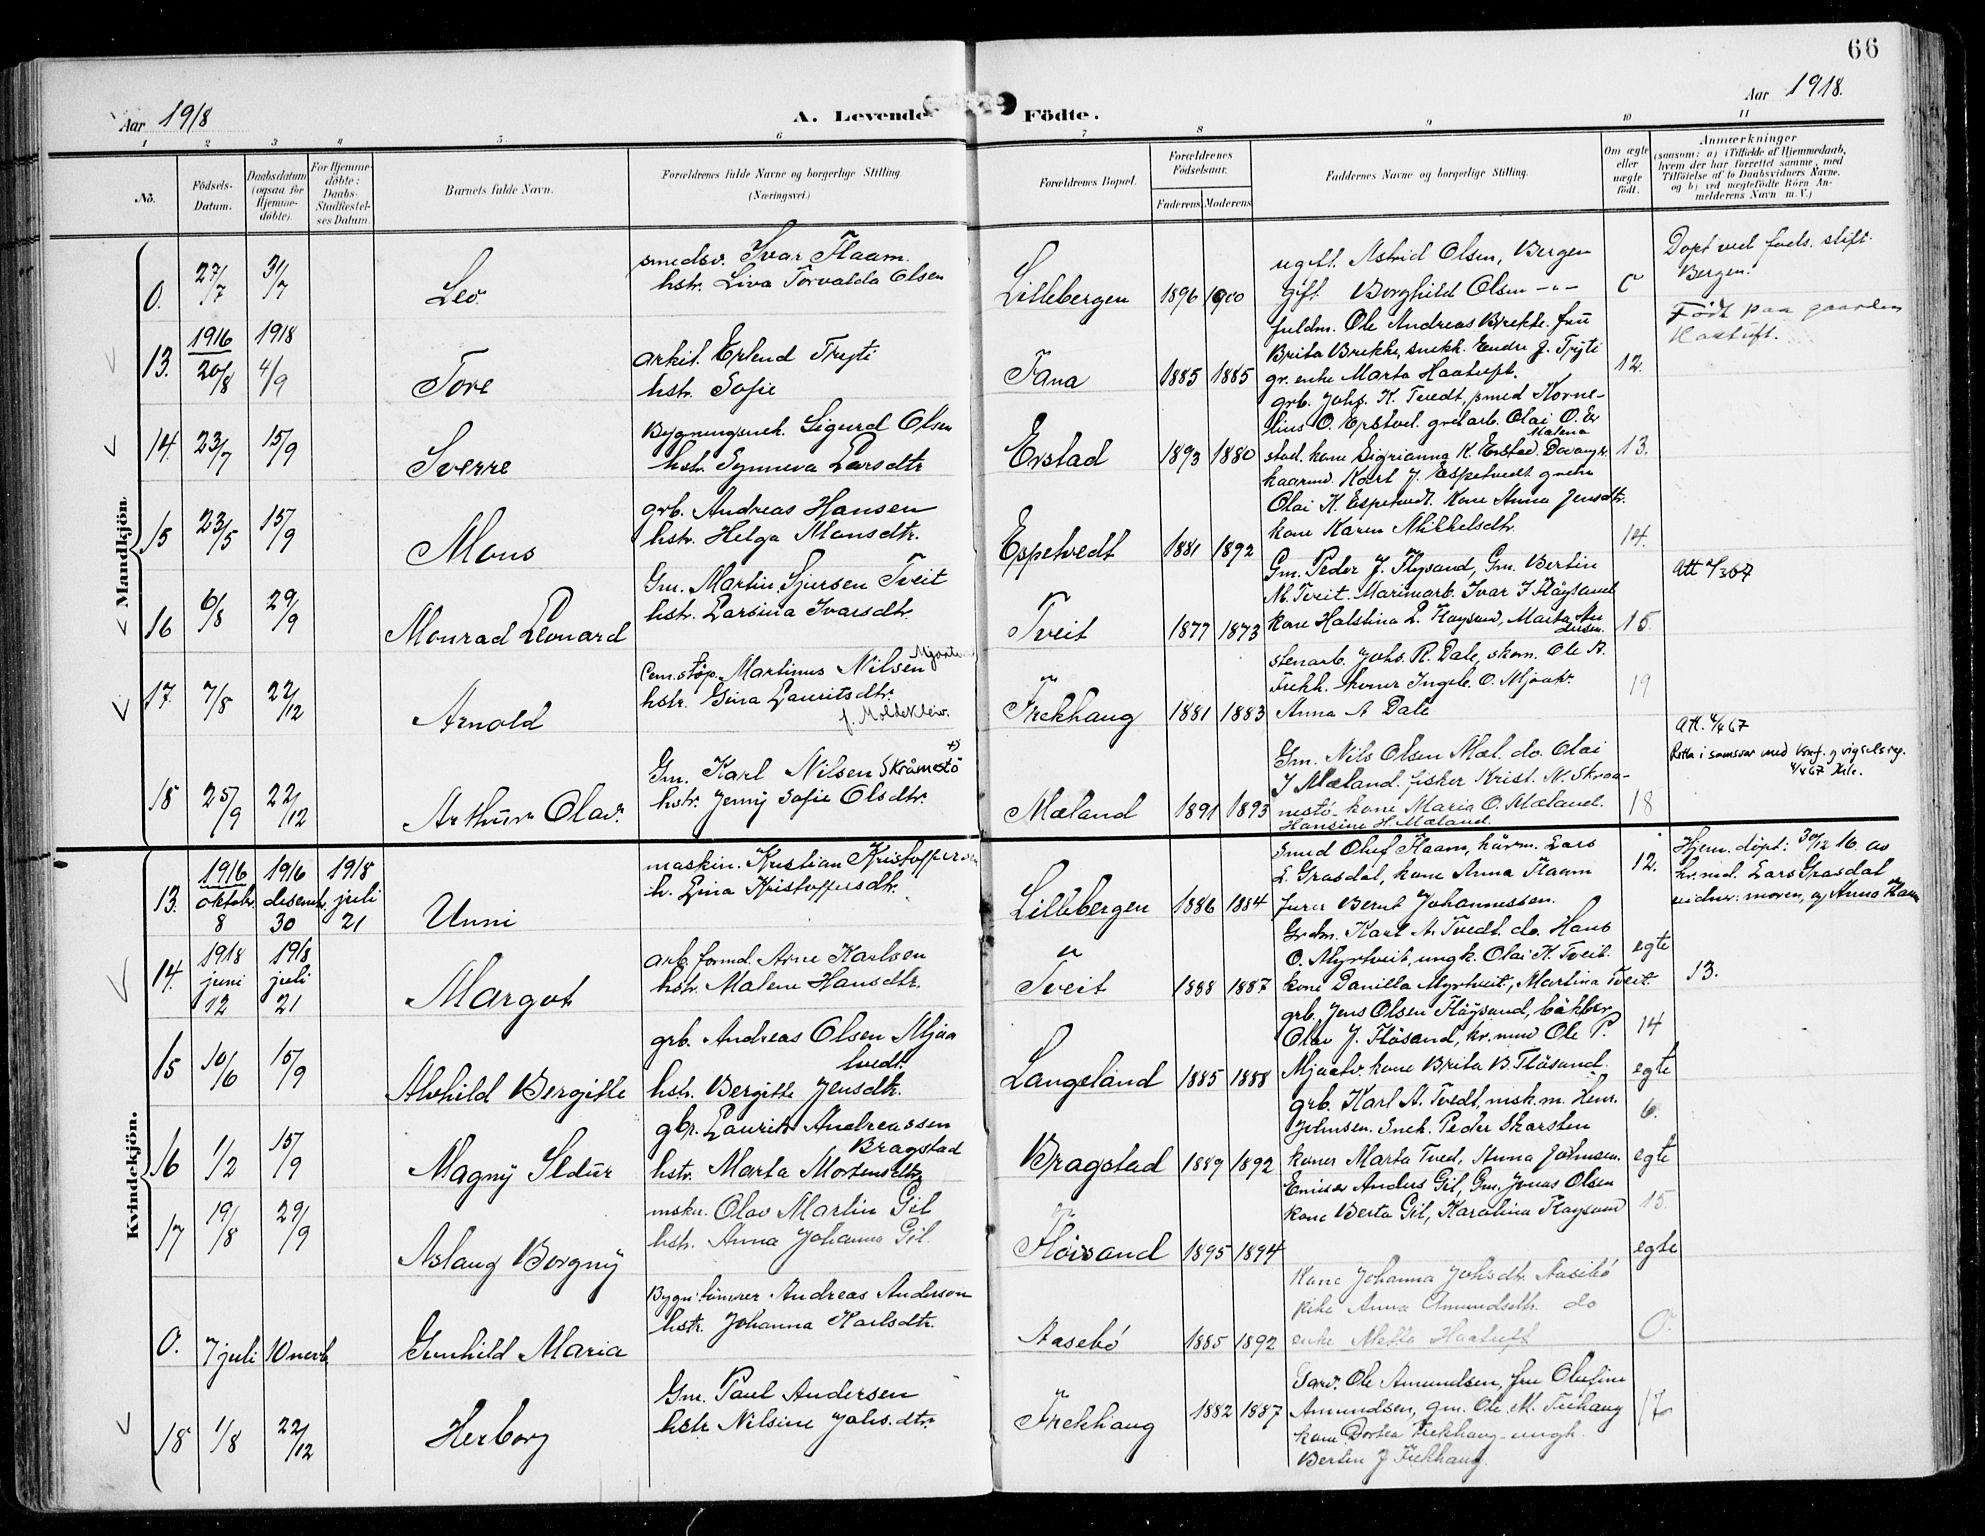 66
Aar 1918
A. Levende Födte.
Aar 1918.
1 2 3 4 5 6 7 8 9 10 11
No.
Födsels-Datum.
Daabsdatum (ogsaa for Hjemme-döbte).
For Hjemme-döbte: Daabs-Stadfæstel-ses Datum.
Barnets fulde Navn.
Forældrenes fulde Navne og borgerlige Stilling.
(Næringsvei.)
Forældrenes Bopæl.
Forældrenes Födselsaar.
Faderens Moderens
Faddernes Navne og borgerlige Stilling.
Om ægte eller uægte födt.
Anmærkninger
(saasom: a) i Tilfælde af Hjemmedaab,
hvem der har forrettet samme, med
Tilföielse af to Daabsvidners Navne.
og b) ved uægtefödte Börn An-
melderens Navn m. V.)
Mandkjön.
0. 27/7 31/7 Leo
smedsv. Ivar Flaam.
hstr. Liva Torvalda Olsen
Lillebergen 1896 1900
ugift. Astrid Olsen, Bergen
gift. Borghild Olsen -"-
Döpt ved föds. stift.
Bergen.
13. 1916 20/8 1918 4/9 Tore
arkit. Erlend Tryti
hstr. Sofie
Fana 1885 1885
fuldm. Ole Andreas Brekke. fru
Brita Brekke, snekk. Endre J. Tryti
gr. enke Marta Haatuft.
12.
Födt paa gaarden
Haatuft.
14. 23/7 15/9 Sverre
Bygningsnek. Sigurd Olsen
hstr. Synneva Larsdtr
Erstad 1893 1880
grb. Johs. K. Tvedt, smed Korne-
lius O. Epstvel. grdarb. Olai O. Er
stad. kone Sigrianna K. Erstad. Malena
13.
15 23/5 15/9 Mons
grb. Andreas Hansen
hstr. Helga Monsdtr.
Espetvedt 1881 1892
haarmd. Karl J. Espetvedt
Olai K. Espetvedt. Kone Anna Jensdtr.
kone Karen Mikkelsdtr.
14.
16 6/8 29/9 Monrad Leonard
Gm. Martin Sjursen Tveit
hstr. Larsina Ivarsdtr.
Tveit 1877 1873
Gm. Peder J. Flysand, Gm. Bertin
M. Tveit. Marinarb. Ivar J Fløysand
kone Halstina L. Fløysand, Marta An
dersen.
15.
17. 7/8 22/12 Arnold
Cem.støp. Martinus Nilsen
hstr. Gina Lauritsdtr.
f. Moldekleiv.
Frekhaug 1881 1883
stenarb. Johs. R. Dale, skom. Ole A.
Frekh. koner Ingeb. O. Mjaatv.
Anna A Dale
19
18 25/9 22/12 Arthur Olav.
Gm. Karl Nilsen Skråmestö +)
hstr. Jenny Sofie Olsdtr.
Mæland 1891 1893
Gm. Nils Olsen Mæl. do. Olai
J Mæland. fisker Krist. N. Skraa-
mestö. kone Maria O. Mæland.
Hansine H. Mæland.
18
Att. 4/4 67
Retta i samsvar med konf. og vigselsreg.
Kvindekjön.
13. 1916 oktobr. 8 1916 desembr 30 1918 juli 21 Unni
maskin. Kristian Kristoffersen
h. Lina Kristoffersdtr.
Lillebergen 1886 1884
Smed Oluf Flaam, härm. Lars
L. Grasdal, kone Anna Flaam
furer Bernt Johannessen.
12.
Hjem. döpt: 30/12 16. av
kr. md. Lars Grasdal
vidner: moren, og Anna Flaam
14. 1918 juni 12 1918 juli 21 Margot
arb. formd. Arne Karlsen
hstr. Malene Hansdtr.
Tveit 1888 1887
Grdm. Karl A. Tvedt. do. Hans
O. Myrtveit, ungk. Olai K. Tveit.
kone Danilla Myrtveit, Martina Tveit.
egte
13.
15 10/6 15/9 Alvhild Bergitte
grb. Andreas Olsen Mjaa
tvedt.
hstr. Bergitte Jensdtr.
Langeland 1885 1888
grb. Jens Olsen Flöysand,
Olai J. Flösand, kr. mnd Ole P.
Mjaatv. kone Brita B. Flösand.
14
egte
16 1/2 15/9 Magny Ildur
gbr. Laurits Andreassen
Bragstad
hstr. Marta Mortensdtr
Bragstad 1889 1892
grb. Karl A. Tvedt, msk.m. Henr.
Johnsen. Snek. Peder Skarsten
koner Marta Tved, Anna Johnsen.
6.
egte
17 19/8 29/9 Aslaug Borgny
mskn. Olav Martin Gil
hstr. Anna Johanna Gil.
Flöisand 1895 1894
Emisær Anders Gil, Gm. Jonas Olsen
kone Berta Gil, Karolina Flaysand
15.
egte
0. 7 juli 10 novb. Gunhild Maria
Bygn. tömrer Andreas Anderson
hstr. Johanna Karlsdtr.
Aasebö 1885 1892
Kone Johanna Johsdtr. Aasebö
pike Anna Amundsdtr. do
enke Metta Haatuft
0.
18 1/8 22/12 Herborg
Gm. Paul Andersen
hstr Nilsine Johs.dtr.
Frekhaug 1882 1887
Ole Amundsen, fru Olufine
Amundsen, gm. Ole M. Frekhaug
kone Dortea Frekhaug. ungk.
Bertin J Frekhaug.
17